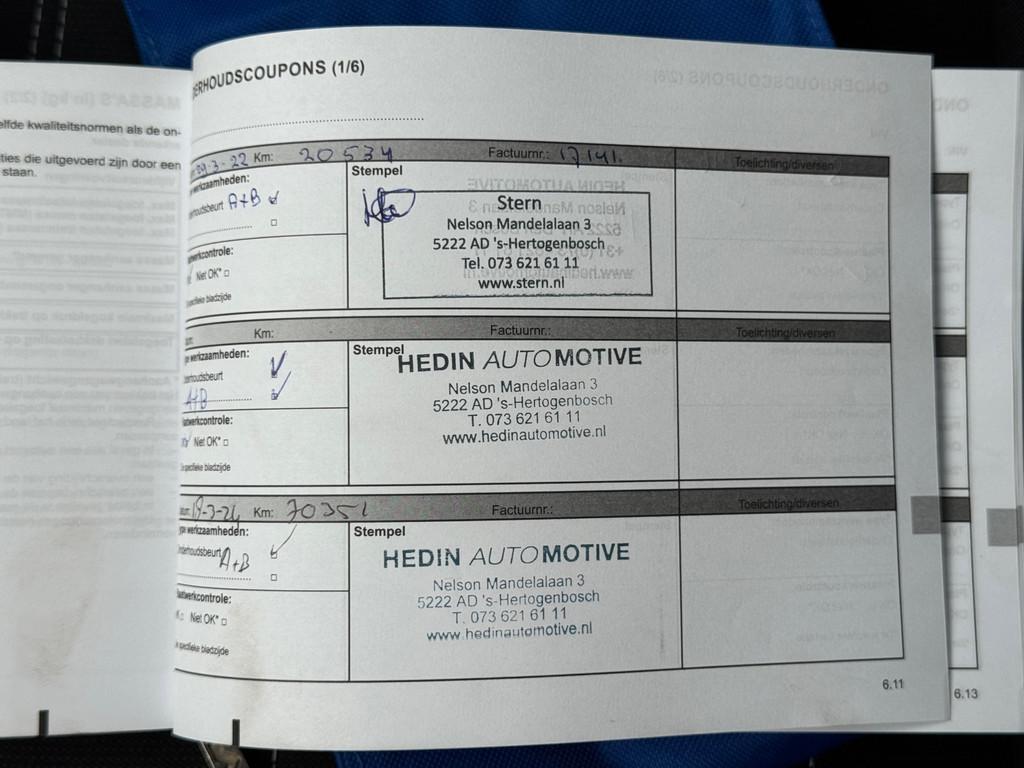 ERHOUDSCOUPONS (1/6)
elfde kwaliteitsnormen als de on-
ties die uitgevoerd zijn door een
staan.
29-3-22 Km: 20 534 Factuurnr.: 17141. Toelichting/diversen
werkzaamheden:
erhoudsbeurt A+B
Stempel
Stern
Nelson Mandelalaan 3
5222 AD 's-Hertogenbosch
Tel. 073 621 61 11
www.stern.nl
werkcontrole:
Niet OK*
specifieke bladzijde
Km: Factuurnr.: Toelichting/diversen
werkzaamheden:
derhoudsbeurt
A+B
Stempel
HEDIN AUTOMOTIVE
Nelson Mandelalaan 3
5222 AD 's-Hertogenbosch
T. 073 621 61 11
www.hedinautomotive.nl
aatwerkcontrole:
Niet OK*
specifieke bladzijde
19-3-24 Km: 70351 Factuurnr.: Toelichting/diversen
ype werkzaamheden:
nderhoudsbeurt A+B
Stempel
HEDIN AUTOMOTIVE
Nelson Mandelalaan 3
5222 AD 's-Hertogenbosch
T. 073 621 61 11
www.hedinautomotive.nl
laatwerkcontrole:
Niet OK*
specifieke bladzijde
6.11
6.13